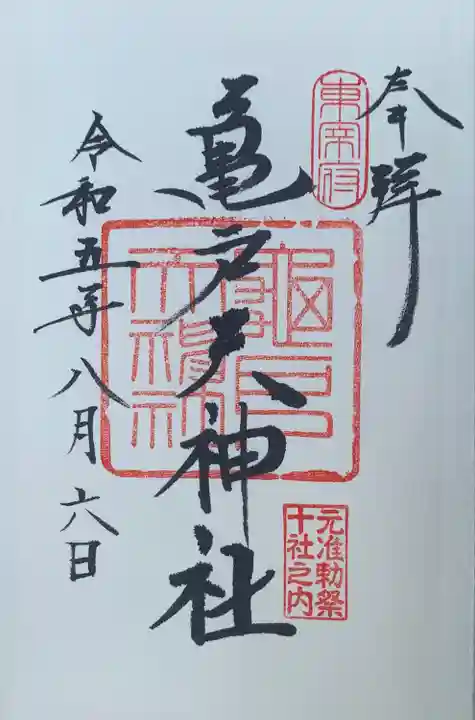 奉拝
東宰府
亀戸天神社
龜戸
天神社
元准勅祭
十社之内
令和五年八月六日